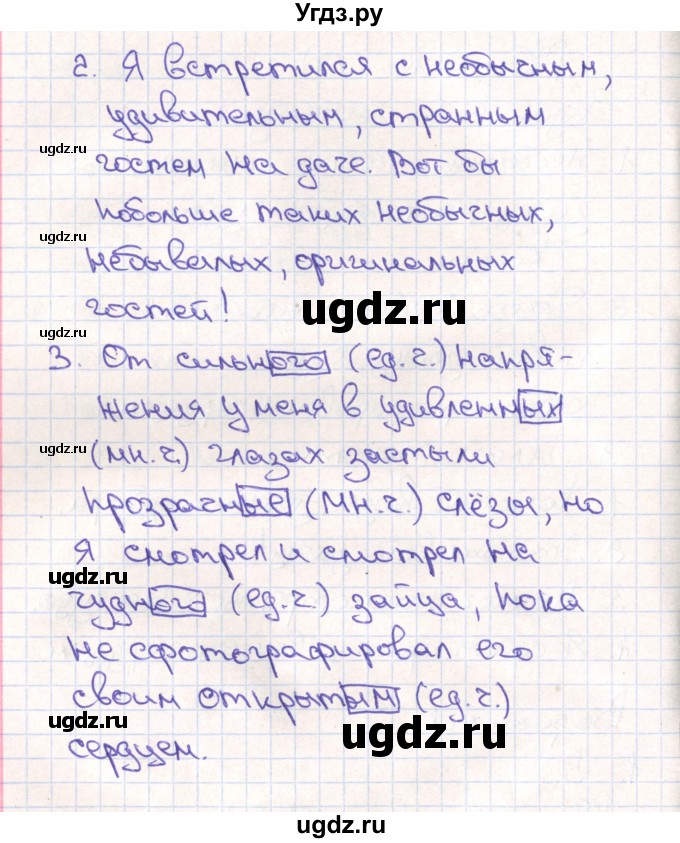 Угдз.ру
2. Я встретился с необычным,
удивительным, странным
ugdz.ru
гостем на даче. Вот бы
побольше таких необычных,
ugdz.ru
небывалых, оригинальных
гостей!
ugdz.ru
ugdz.ru
3. От сильного (ед.ч.) напря-
жения у меня в удивленных
ugdz.ru
(мн.ч.) глазах застыли
прозрачные (мн.ч.) слёзы, но
я смотрел и смотрел на
ugdz.ru
чудного (ед.ч.) зайца, пока
не сфотографировал его
своим открытым (ед.ч.)
ugdz.ru
ugdz.ru
сердцем.
ugdz.ru